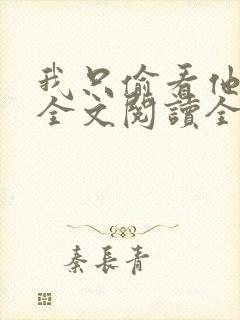 我只偷看他
全文閱讀全
秦長青